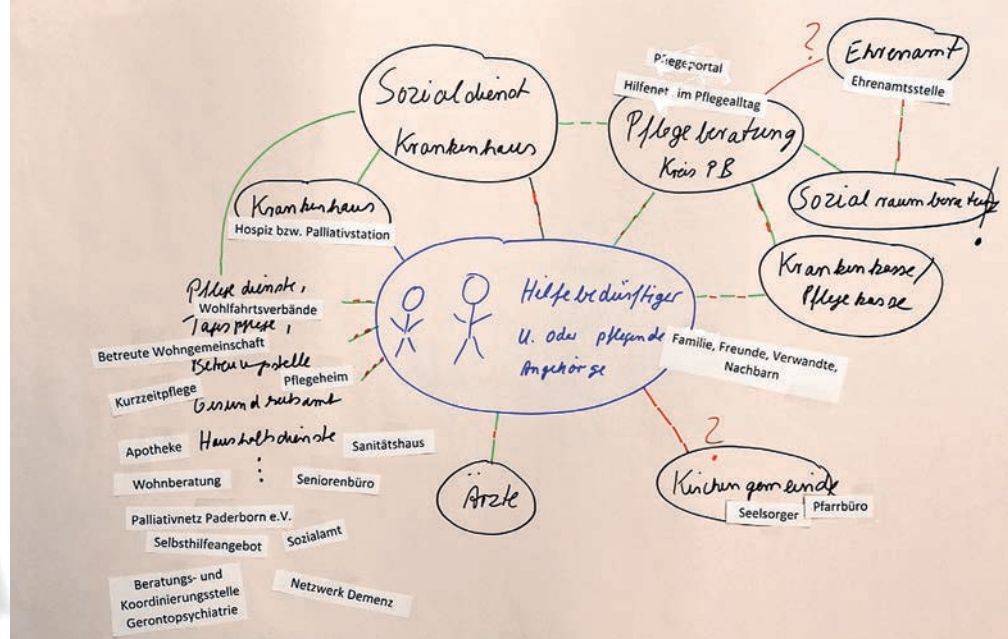 Sozialdienst
Krankenhaus
Pflegeportal
Hilfenet im Pflegealltag
Pflegeberatung
Kreis PB
?
Ehrenamt
Ehrenamtsstelle
Sozialraumberatung
!
Krankenhaus
Hospiz bzw. Palliativstation
Krankenkasse/
Pflegekasse
Hilfebedürftiger
u. oder pflegende
Angehörge
Familie, Freunde, Verwandte,
Nachbarn
Pflegedienste,
Wohlfahrtsverbände
Tagespflege,
Betreute Wohngemeinschaft
Betreuungsstelle
Pflegeheim
Kurzzeitpflege
Gesundheitsamt
Apotheke
Haushaltsdienste
Sanitätshaus
Wohnberatung
Seniorenbüro
Palliativnetz Paderborn e.V.
Selbsthilfeangebot
Sozialamt
Beratungs- und
Koordinierungsstelle
Gerontopsychiatrie
Netzwerk Demenz
Ärzte
?
Kirchengemeinde
Seelsorger
Pfarrbüro